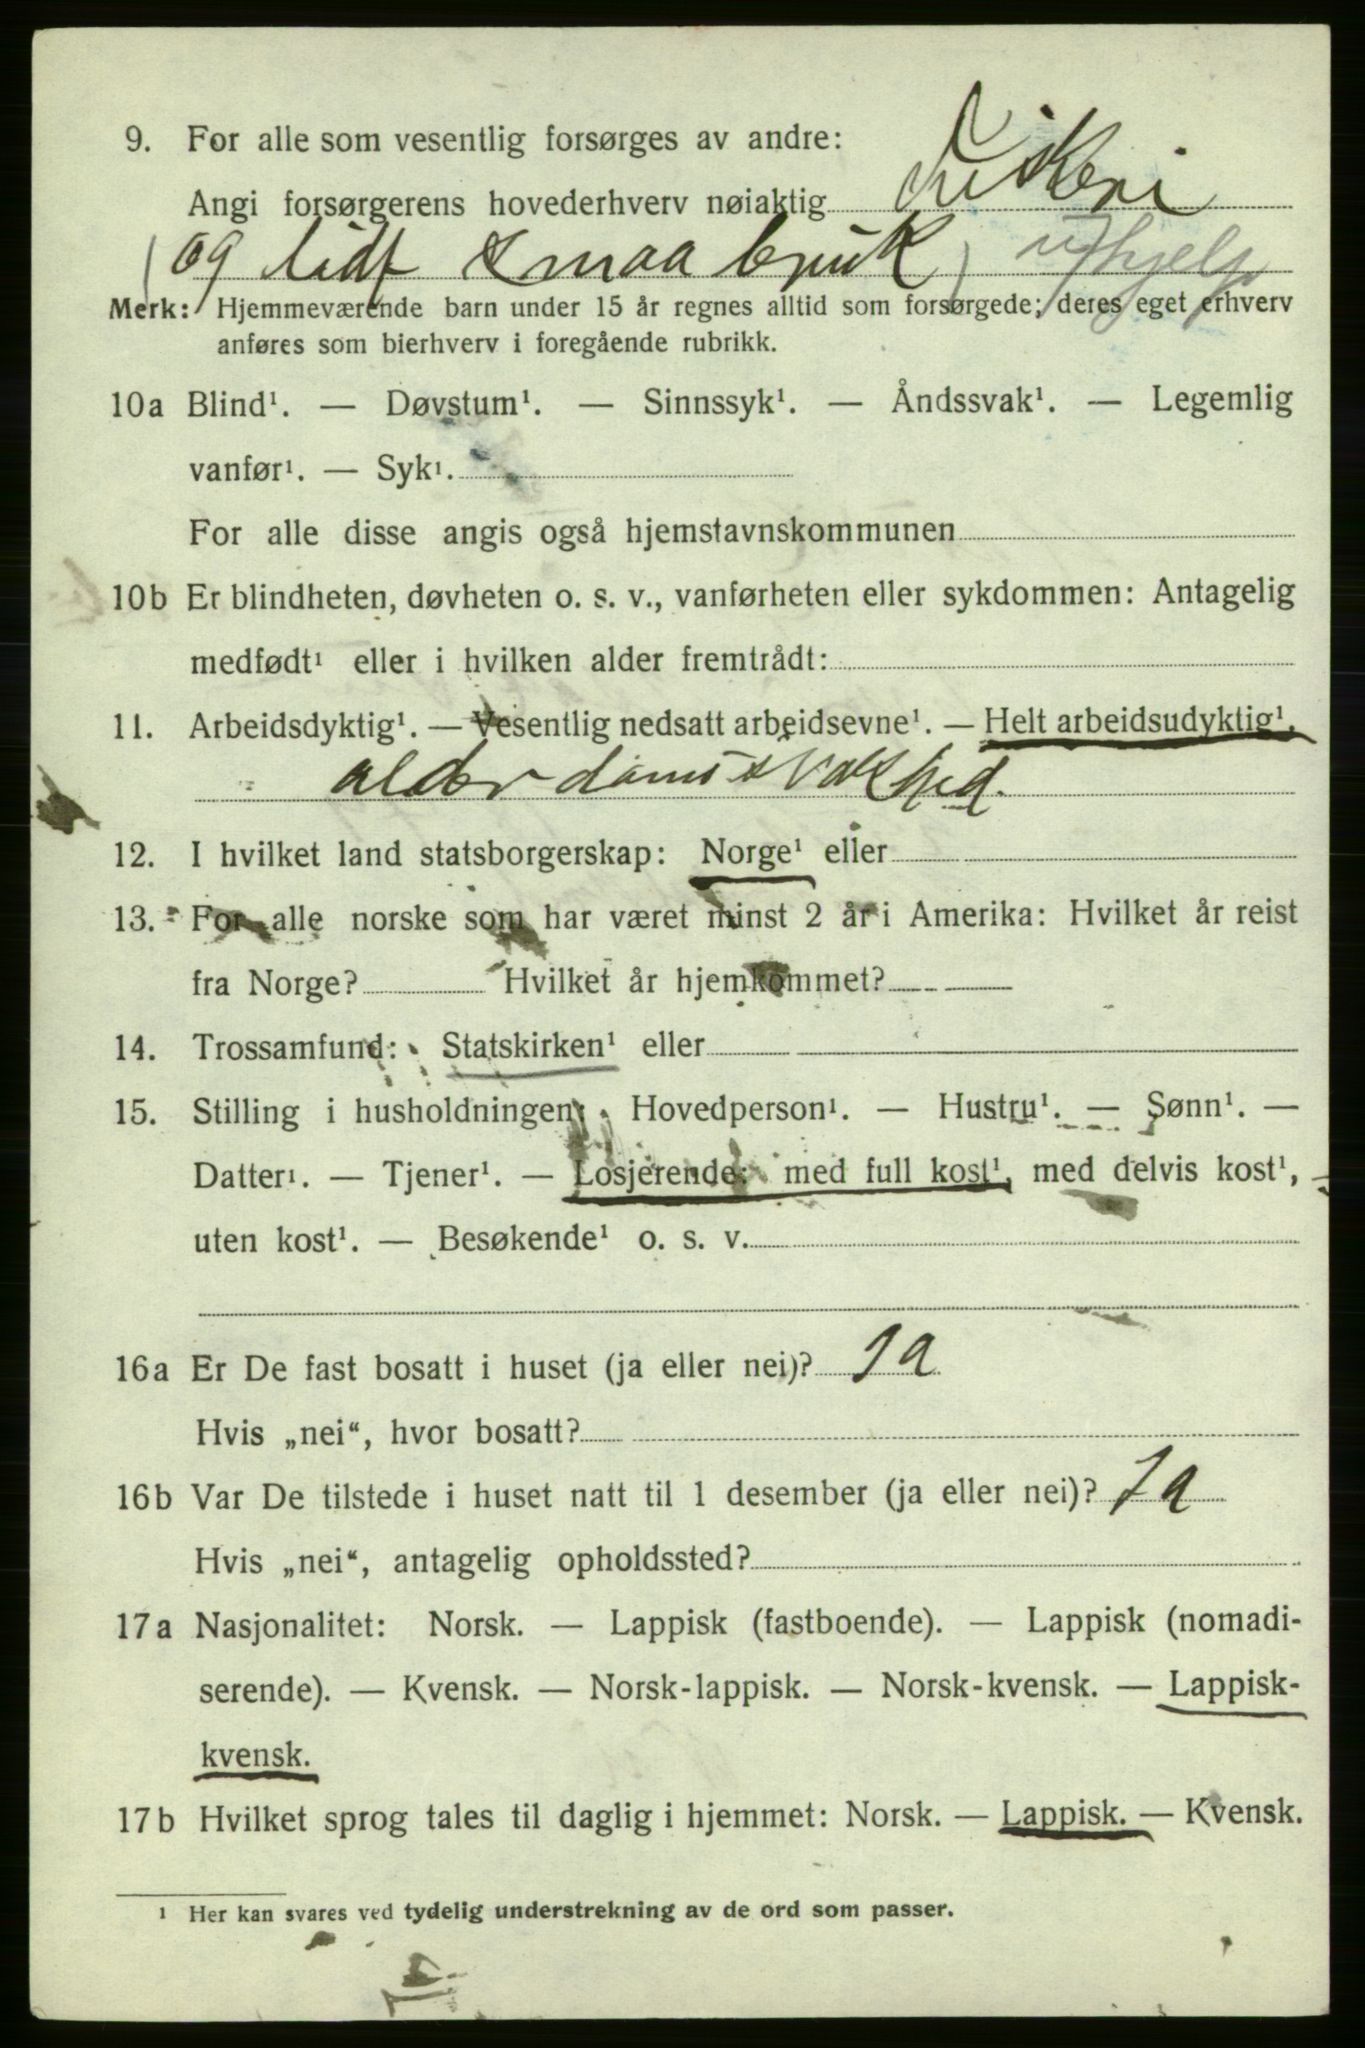 9. For alle som vesentlig forsørges av andre:
Angi forsørgerens hovederhverv nøiaktig Fiskeri
(og lidt smaa bruk) u/hjelp
Merk: Hjemmeværende barn under 15 år regnes alltid som forsørgede; deres eget erhverv
anføres som bierhverv i foregående rubrikk.
10a Blind¹. — Døvstum¹. — Sinnssyk¹. — Åndssvak¹. — Legemlig
vanfør¹. — Syk¹.
For alle disse angis også hjemstavnskommunen
10b Er blindheten, døvheten o. s. v., vanførheten eller sykdommen: Antagelig
medfødt¹ eller i hvilken alder fremtrådt:
11. Arbeidsdyktig¹. — Vesentlig nedsatt arbeidsevne¹. — Helt arbeidsudyktig¹.
alderdomssvakhed.
12. I hvilket land statsborgerskap: Norge¹ eller
13. For alle norske som har været minst 2 år i Amerika: Hvilket år reist
fra Norge? Hvilket år hjemkommet?
14. Trossamfund: Statskirken¹ eller
15. Stilling i husholdningen: Hovedperson¹. — Hustru¹. — Sønn¹. —
Datter¹. — Tjener¹. — Losjerende: med full kost¹, med delvis kost¹,
uten kost¹. — Besøkende¹ o. s. v.
16a Er De fast bosatt i huset (ja eller nei)? Ja
Hvis „nei“, hvor bosatt?
16b Var De tilstede i huset natt til 1 desember (ja eller nei)? Ja
Hvis „nei“, antagelig opholdssted?
17a Nasjonalitet: Norsk. — Lappisk (fastboende). — Lappisk (nomadi-
serende). — Kvensk. — Norsk-lappisk. — Norsk-kvensk. — Lappisk-
kvensk.
17b Hvilket sprog tales til daglig i hjemmet: Norsk. — Lappisk. — Kvensk.
¹ Her kan svares ved tydelig understrekning av de ord som passer.